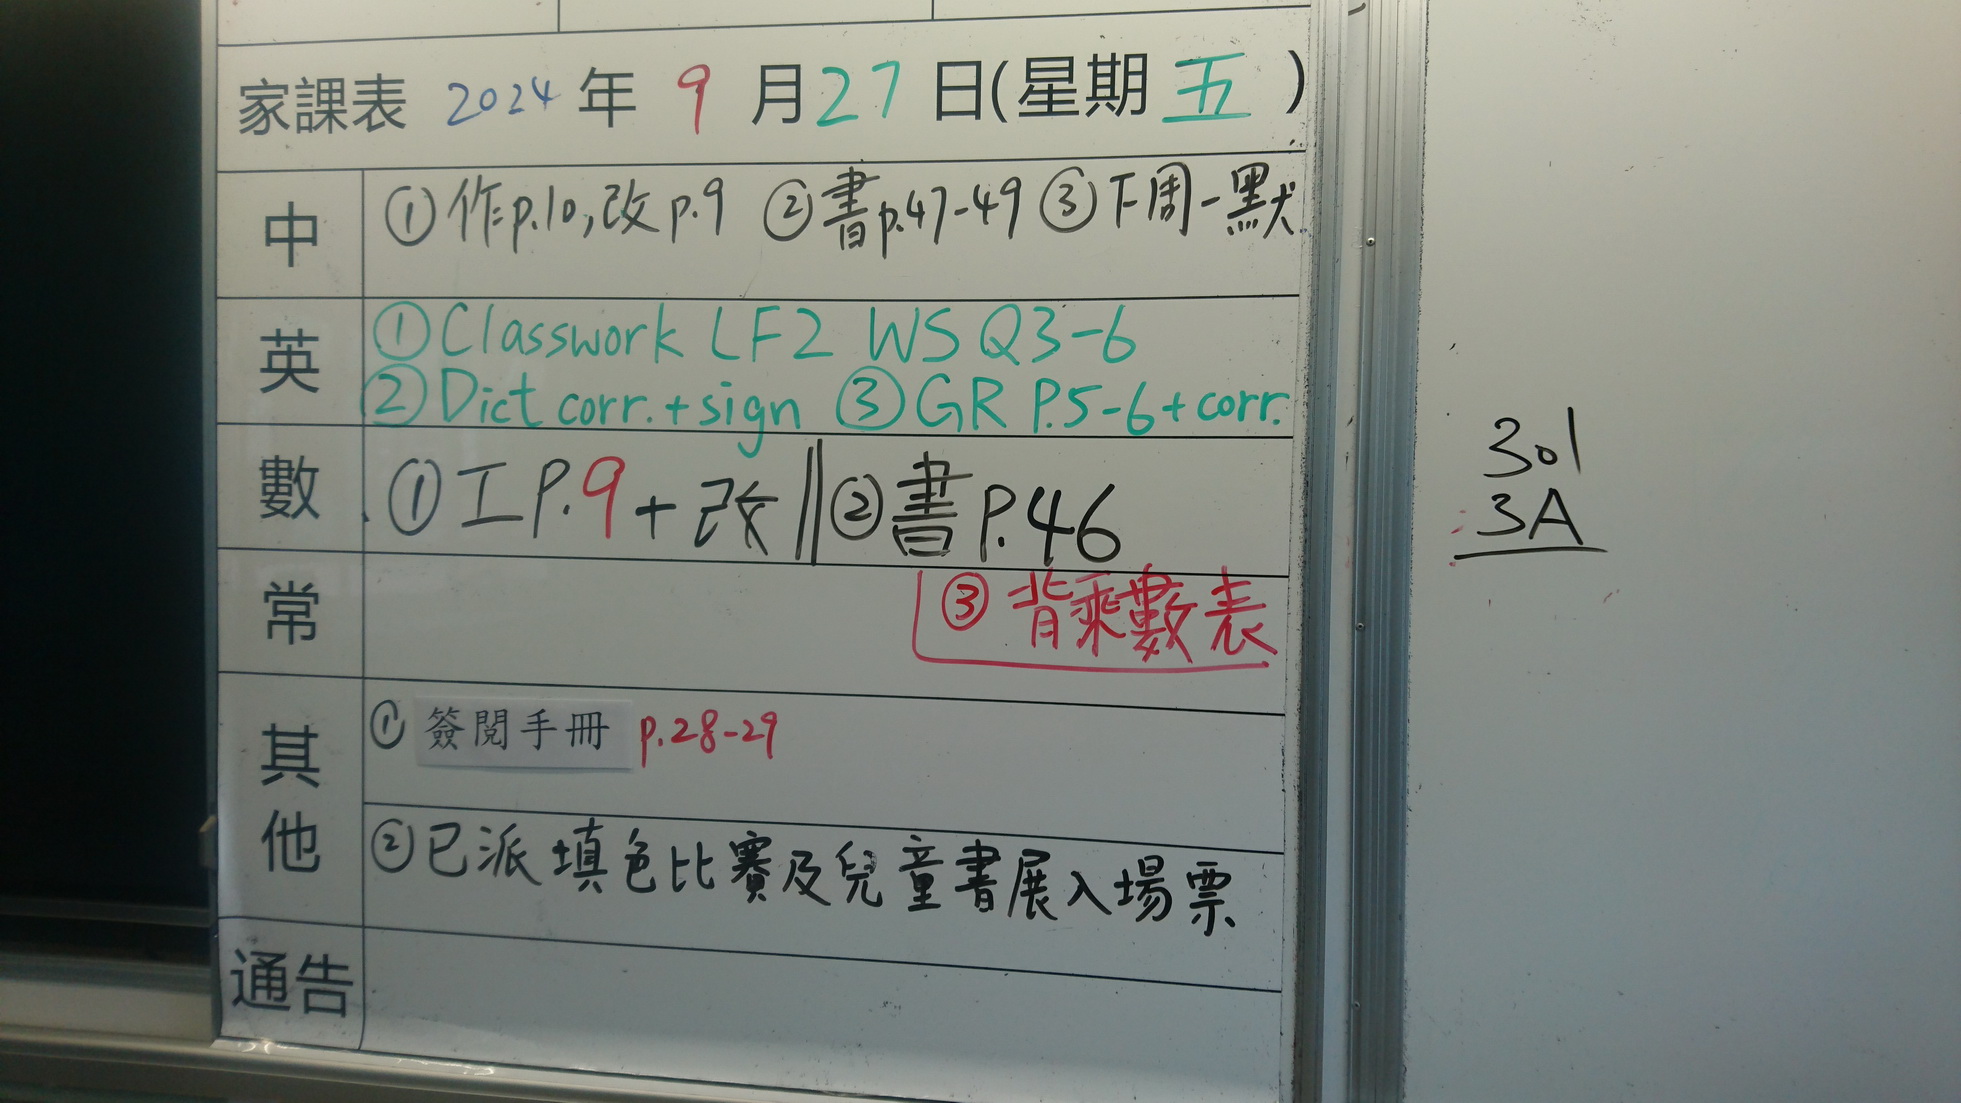 家課表 2024 年 9 月 27 日(星期 五 )
中
①作p.10,改p.9 ②書p.47-49 ③下周一默
英
①Classwork LF2 WS Q3-6
②Dict corr.+sign ③GR P.5-6+corr.
數
①工P.9+改 ②書P.46
常
③背乘數表
其他
① 簽閱手冊 p.28-29
②已派填色比賽及兒童書展入場票
通告
301
3A